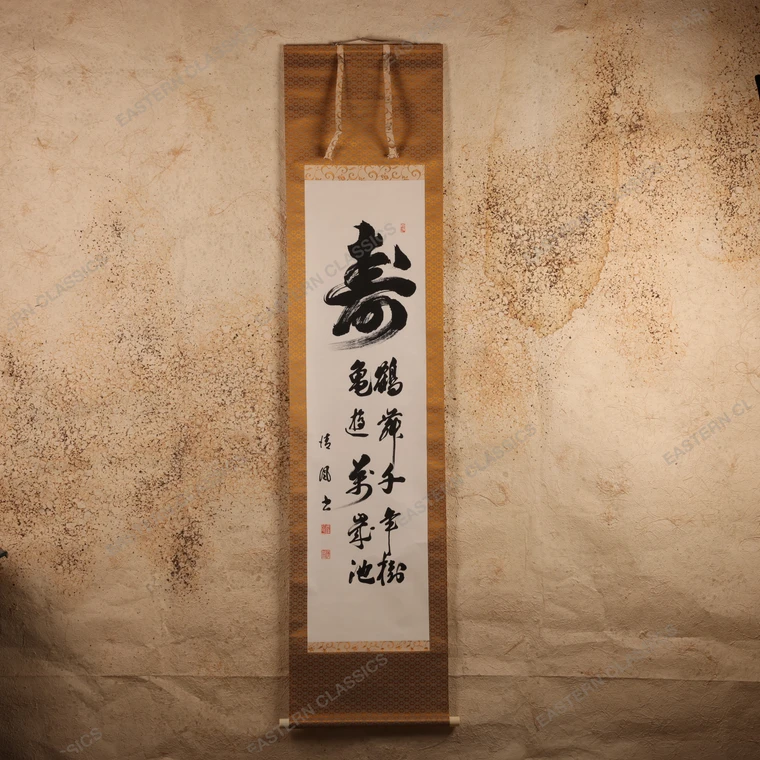 寿
鶴舞千年樹
亀遊萬歳池
清風書
EASTERN CLASSICS
EASTERN CLASSICS
EASTERN CLASSICS
EASTERN CLASSICS
EASTERN CLASSICS
EASTERN CLASSICS